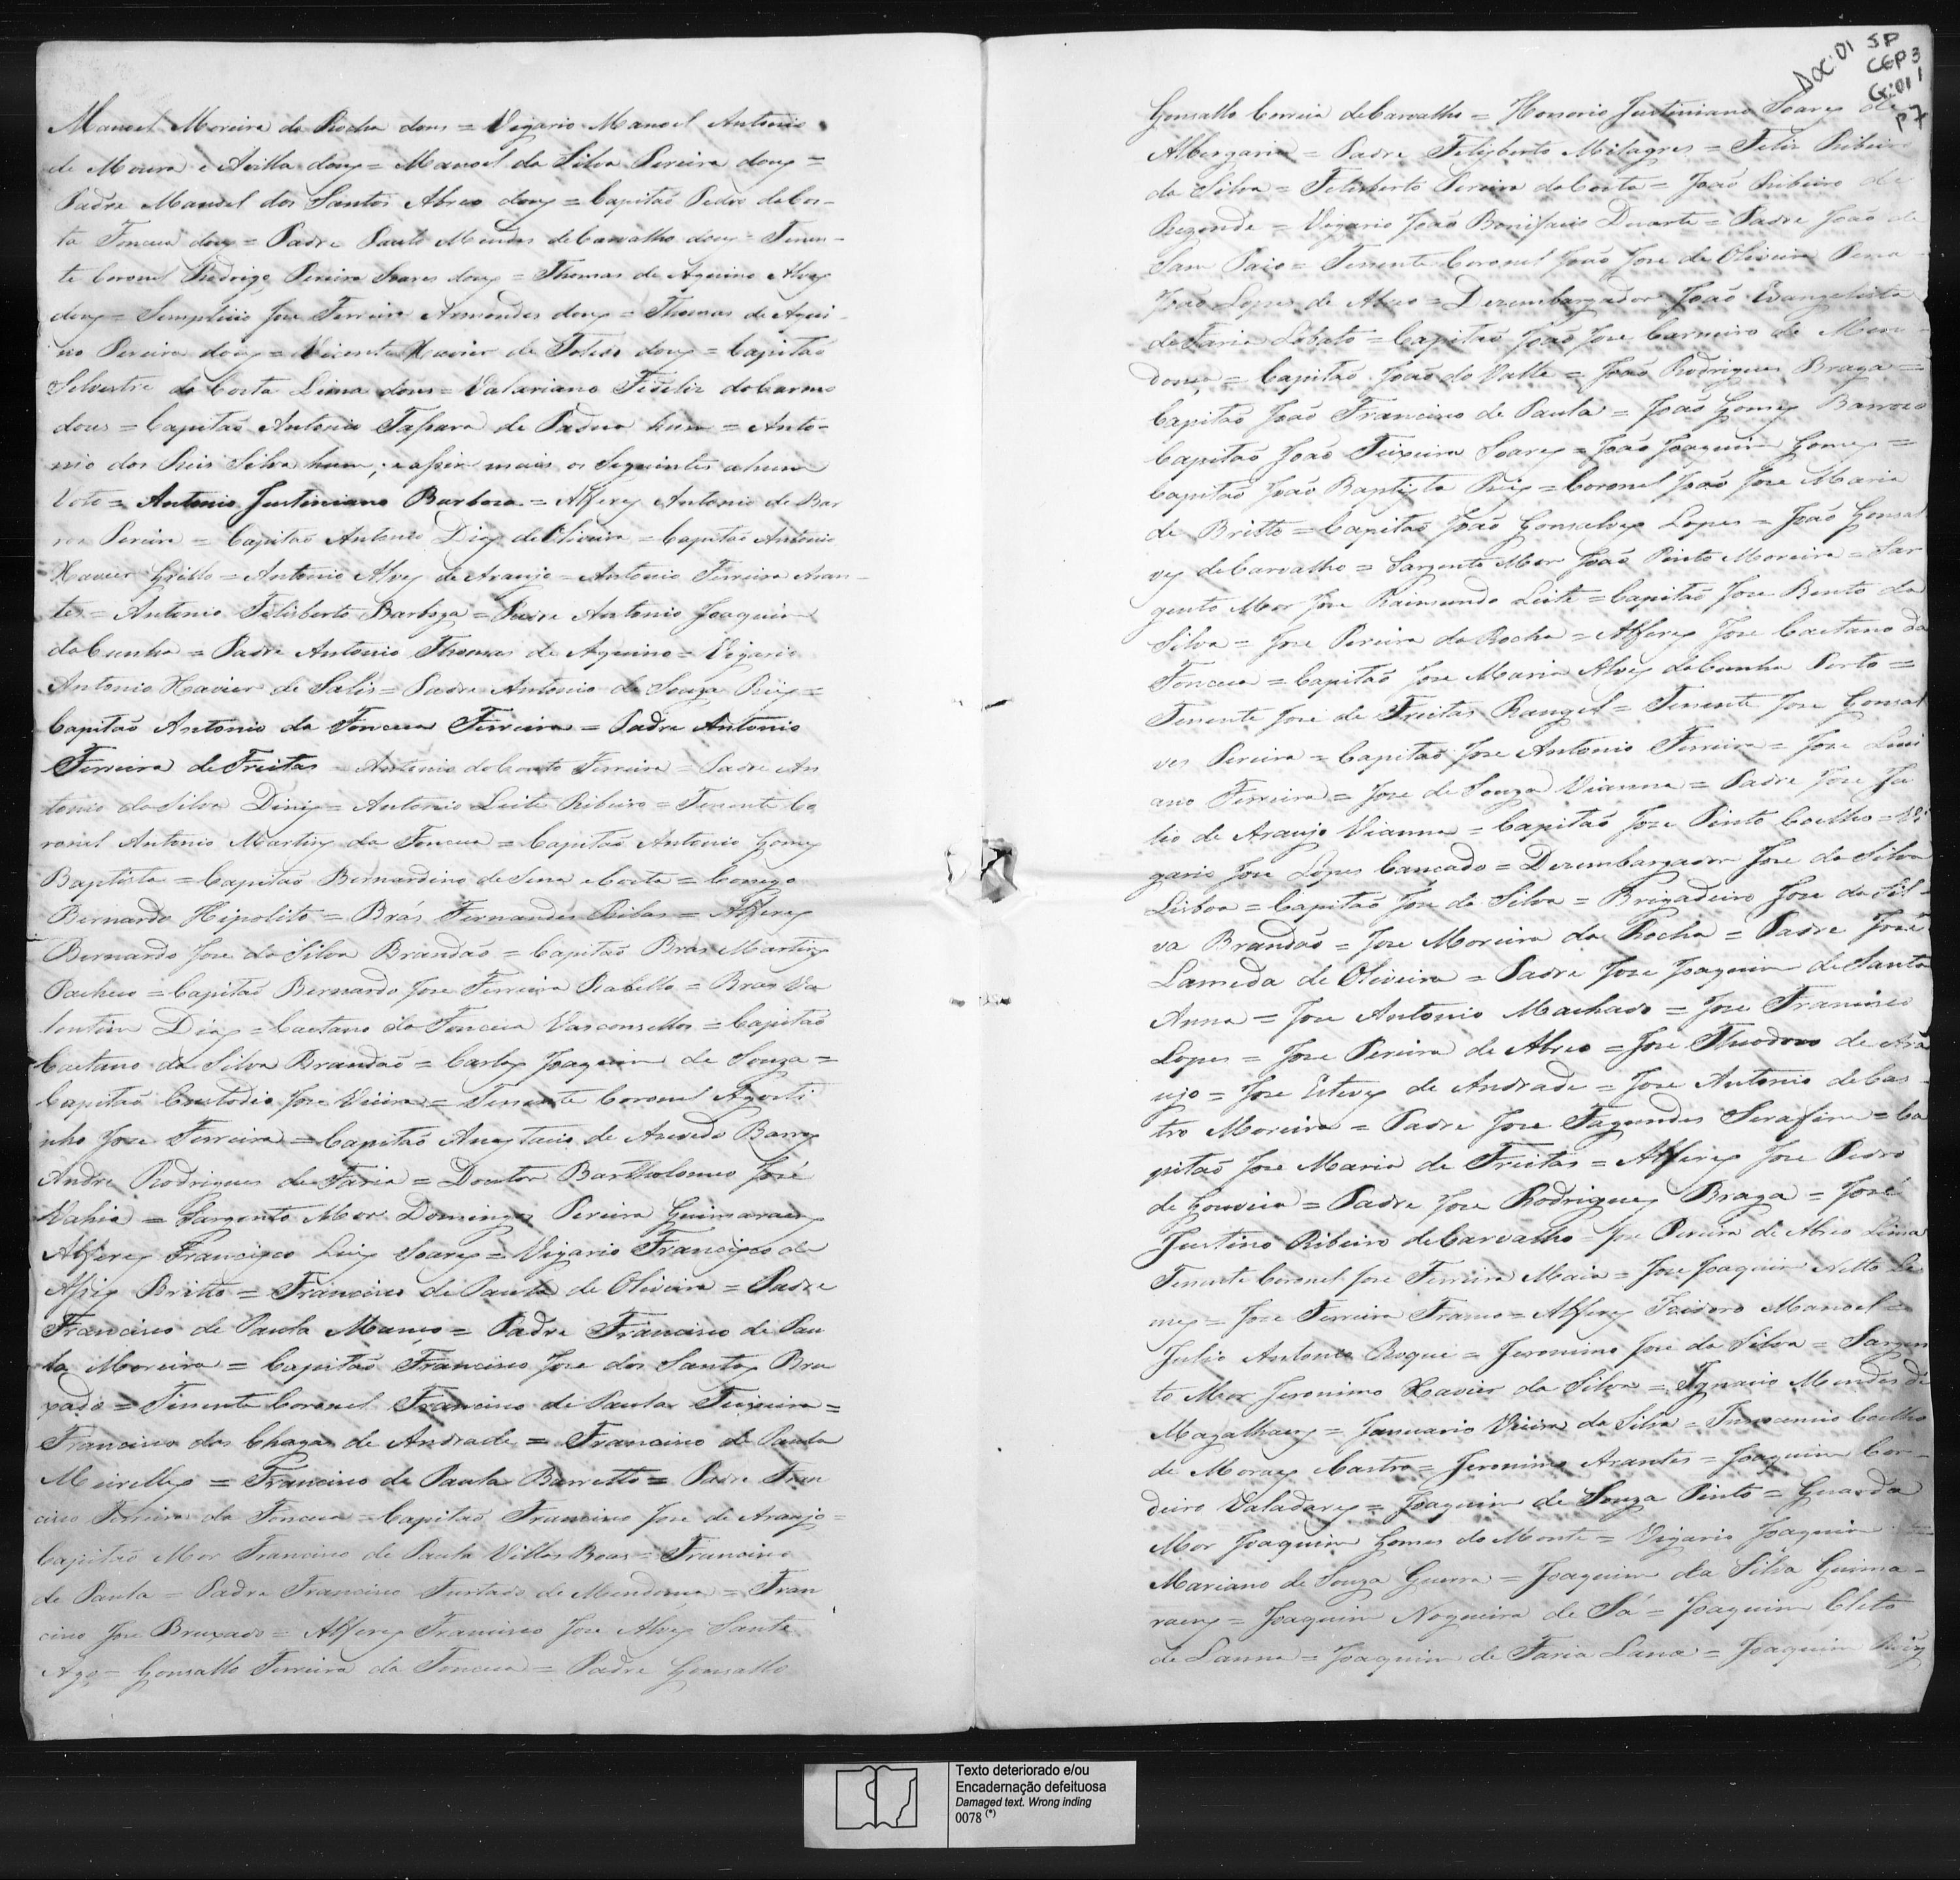 Manoel Moreira da Rocha dous = Vigario Manoel Antonio
de Moura e Avilla dous = Manoel da Silva Pereira dous =
Padre Manoel dos Santos Abreo dous = Capitaõ Pedro da Cos-
ta Fonceca dous = Padre Paulo Mendes de Carvalho dous = Tenen-
te Coronel Rodrigo Pereira Soares dous = Thomas de Aquino Alves
dous = Simplicio Jose Ferreira Armondes dous = Thomas de Aqui-
no Pereira dous = Vicente Xavier de Toledo dous = Capitaõ
Silvestre da Costa Lima dous = Valariano Fidelis do Carmo
dous = Capitaõ Antonio Tassara de Padua hum = Anto-
nio dos Reis Silva hum; e assim mais os Seguintes a hum
Voto = Antonio Justiniano Barboza = Alferes Antonio de Bar
ros Pereira = Capitaõ Antonio Dias de Oliveira = Capitaõ Antonio
Xavier = Antonio Alves de Araujo = Antonio Ferreira Aran-
tes = Antonio Felisberto Barboza = Padre Antonio Joaquim
da Cunha = Padre Antonio Thomas de Aquino = Vigario
Antonio Xavier de Salis = Padre Antonio de Souza Reis =
Capitaõ Antonio da Fonceca Ferreira = Padre Antonio
Ferreira de Freitas = Antonio do Couto Ferreira = Padre An
tonio da Silva Diniz = Antonio Leite Ribeiro = Tenente Co
ronel Antonio Martins da Fonceca = Capitaõ Antonio Gomes
Baptista = Capitaõ Bernardino de Sena e Costa = Conego
Bernardo Hipolito = Brás Fernandes Ribas = Alferes
Bernardo Jose da Silva Brandaõ = Capitaõ Bras Martins
Pacheco = Capitaõ Bernardo Jose Ferreira Rabello = Bras Va
lentim Dias = Caetano da Fonceca Vasconsellos = Capitaõ
Caetano da Silva Brandaõ = Carlos Joaquim de Souza =
Capitaõ Custodio Jose Vieira = Tenente Coronel Agosti
nho Jose Ferreira = Capitaõ Anastacio de Azevedo Barros
Andre Rodrigues de Faria = Doutor Bartholomeo José
Vahia = Sargento Mor Domingos Pereira Guimaraens
Alferes Francisco Luis Soares = Vigario Francisco de
Assis Britto = Francisco de Paula de Oliveira = Padre
Francisco de Paula = Padre Francisco de Pau
la Moreira = Capitaõ Francisco Jose dos Santos Bru
xado = Tenente Coronel Francisco de Paula Teixeira =
Francisco das Chagas de Andrade = Francisco de Paula
Meirelles = Francisco de Paula Barretto = Padre Fran
cisco Ferreira da Fonceca = Capitaõ Francisco Jose de Araujo =
Capitaõ Mor Francisco de Paula Villas Boas = Francisco
de Paula = Padre Francisco Furtado de Mendonça = Fran
cisco Jose Bruxado = Alferes Francisco Jose Alves Sante
Ago = Gonsallo Ferreira da Fonceca = Padre Gonsallo
Doc: 01 SP
CEP 3
Cx: 01 1
P 7
Gonsallo Correia de Carvalho = Honorio Justiniano Soares de
Albergaria = Padre Felisberto Milagres = Felis Ribeiro
da Silva = Felisberto Pereira da Costa = João Ribeiro de
Rezende = Vigario João Bonifacio Duarte = Padre João de
Sam Paio = Tenente Coronel João Jose de Oliveira Pena
João Lopes de Abreo = Dezembargador João Evangelista
de Faria Lobato = Capitaõ João Jose Carneiro de Men
donça = Capitaõ João do Valle = João Rodrigues Braga =
Capitaõ João Francisco de Paula = João Gomes Barrozo
Capitaõ João Teixeira Soares = João Joaquim Gomes =
Capitaõ João Baptista Reis = Coronel João Jose Maria
de Britto = Capitaõ João Gonsalves Lopes = João Gonsal
ves de Carvalho = Sargento Mor João Pinto Moreira = Sar
gento Mor Jose Raimundo Leite = Capitaõ Jose Bento da
Silva = Jose Pereira da Rocha = Alferes Jose Caetano da
Fonceca = Capitaõ Jose Maria Alves da Cunha Porto =
Tenente Jose de Freitas Rangel = Tenente Jose Gonsal
ves Pereira = Capitaõ Jose Antonio Ferreira = Jose Luci
ano Ferreira = Jose de Souza Vianna = Padre Jose Ju
lio de Araujo Vianna = Capitaõ Jose Pinto Coelho = Vi
gario Jose Lopes Cancado = Dezembargador Jose da Silva
Lisboa = Capitaõ Jose da Silva = Brigadeiro Jose da Sil-
va Brandaõ = Jose Moreira da Rocha = Padre José
Lameda de Oliveira = Padre Jose Joaquim de Santa
Anna = Jose Antonio Machado = Jose Francisco
Lopes = Jose Pereira de Abreo = Jose Theodoro de Ara
ujo = Jose Esteves de Andrade = Jose Antonio de Cas-
tro Moreira = Padre Jose Fagundes Serafim = Ca
pitaõ Jose Maria de Freitas = Alferes Jose Pedro
de Gouveia = Padre Jose Rodrigues Braga = José
Justino Ribeiro de Carvalho = Jose Pereira de Abreo Lima
Tenente Coronel Jose Ferreira Maia = Jose Joaquim Netto Le
mes = Jose Ferreira Franco = Alferes Izidoro Manoel =
Julio Antonio Roque = Jeronimo Jose da Silva = Sargen
to Mor Jeronimo Xavier da Silva = Ignacio Mendes de
Magalhaens = Januario Vieira da Silva = Innocencio Coelho
de Moraes Castro = Jeronimo Arantes = Joaquim Cor-
deiro Valadares = Joaquim de Souza Pinto = Guarda
Mor Joaquim Gomes do Monte = Vigario Joaquim
Mariano de Souza Guerra = Joaquim da Silva Guima-
raens = Joaquim Nogueira de Sá = Joaquim Cleto
de Lanna = Joaquim de Faria Lana = Joaquim Reis
Texto deteriorado e/ou
Encadernação defeituosa
Damaged text. Wrong inding
0078 (*)